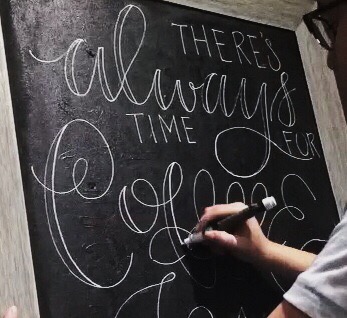 THERE'S
always
TIME FOR
Coffee